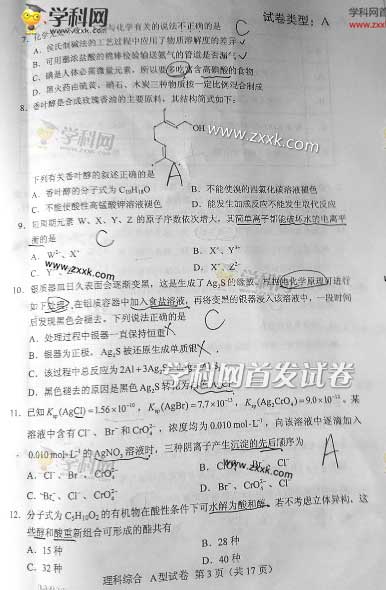 学科网
WWW.ZXXK.COM
试卷类型：A
7. 化学 与化学有关的说法不正确的是 C
A．侯氏制碱法的工艺过程中应用了物质溶解度的差异
B．可用蘸浓盐酸的棉棒检验输送氨气的管道是否漏气
C．碘是人体必需微量元素，所以要多吃富含高碘酸的食物
D．黑火药由硫黄、硝石、木炭三种物质按一定比例混合制成
8. 香叶醇是合成玫瑰香油的主要原料，其结构简式如下：
OH
www.zxxk.com
学科网
下列有关香叶醇的叙述正确的是 A
A．香叶醇的分子式为C₁₀H₁₈O B．不能使溴的四氯化碳溶液褪色
C．不能使酸性高锰酸钾溶液褪色 D．能发生加成反应不能发生取代反应
9. 短周期元素 W、X、Y、Z 的原子序数依次增大，其简单离子都能破坏水的电离平
衡的是 C
A．W²⁻ X⁺ B．X⁺、Y³⁺
C．Y³⁺ D．X⁺ Z²⁻
zxxk.com
10. 银质器皿日久表面会逐渐变黑，这是生成了Ag₂S的缘故，根据电化学原理可进行
如下处理：在铝质容器中加入食盐溶液，再将变黑的银器浸入该溶液中，一段时间
后发现黑色会褪去。下列说法正确的是 C
A．处理过程中银器一直保持恒重 X
B．银器为正极，Ag₂S被还原生成单质银
C．该过程中总反应为2Al+3Ag₂S
D．黑色褪去的原因是黑色Ag₂S转化为
学科网首发试卷
11. 已知Ksp(AgCl)=1.56×10⁻¹⁰，Ksp(AgBr)=7.7×10⁻¹³，Ksp(Ag₂CrO₄)=9.0×10⁻¹²。某
溶液中含有Cl⁻、Br⁻和CrO₄²⁻，浓度均为0.010mol·L⁻¹，向该溶液中逐滴加入
0.010mol·L⁻¹的AgNO₃溶液时，三种阴离子产生沉淀的先后顺序为 A
A．Cl⁻、Br⁻、CrO₄²⁻ B．CrO₄²⁻、Br⁻、Cl⁻
C．Br⁻、Cl⁻、CrO₄²⁻ D．Br⁻、CrO₄²⁻、Cl⁻
12. 分子式为C₅H₁₀O₂的有机物在酸性条件下可水解为酸和醇，若不考虑立体异构，这
些醇和酸重新组合可形成的酯共有
A．15种 B．28种
C．32种 D．40种
理科综合 A型试卷 第3页（共17页）